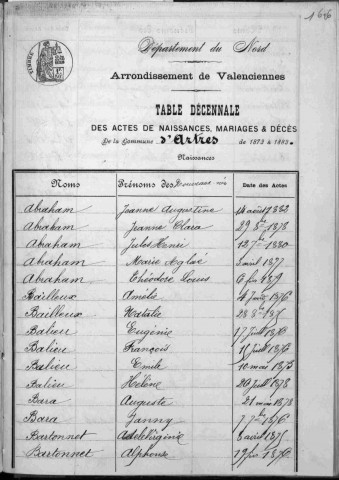 166
Département du Nord
Arrondissement de Valenciennes
TABLE DÉCENNALE
DES ACTES DE NAISSANCES, MARIAGES & DÉCÈS
De la Commune d'Artres de 1873 à 1883
Naissances
Noms Prénoms des Nouveaux nés Date des Actes
Abraham Jeanne Augustine 14 août 1882
Abraham Jeanne Clara 29 8bre 1878
Abraham Jules Henri 12 7bre 1880
Abraham Marie Aglaé 3 avril 1877
Abraham Théodore Louis 6 fév 1879
Bailleux Amélie 1876
Bailleux Natalie 28
Balieu Eugénie 17
Balieu François 15
Balieu Emile 10 mars 1873
Balieu Hélène 20 1878
Bara Auguste 21 mars 1878
Bara Fanny 7 7bre 1876
Bartonnet Adèle Virginie 8 avril 1875
Bartonnet Alphonse 19 fév. 1876